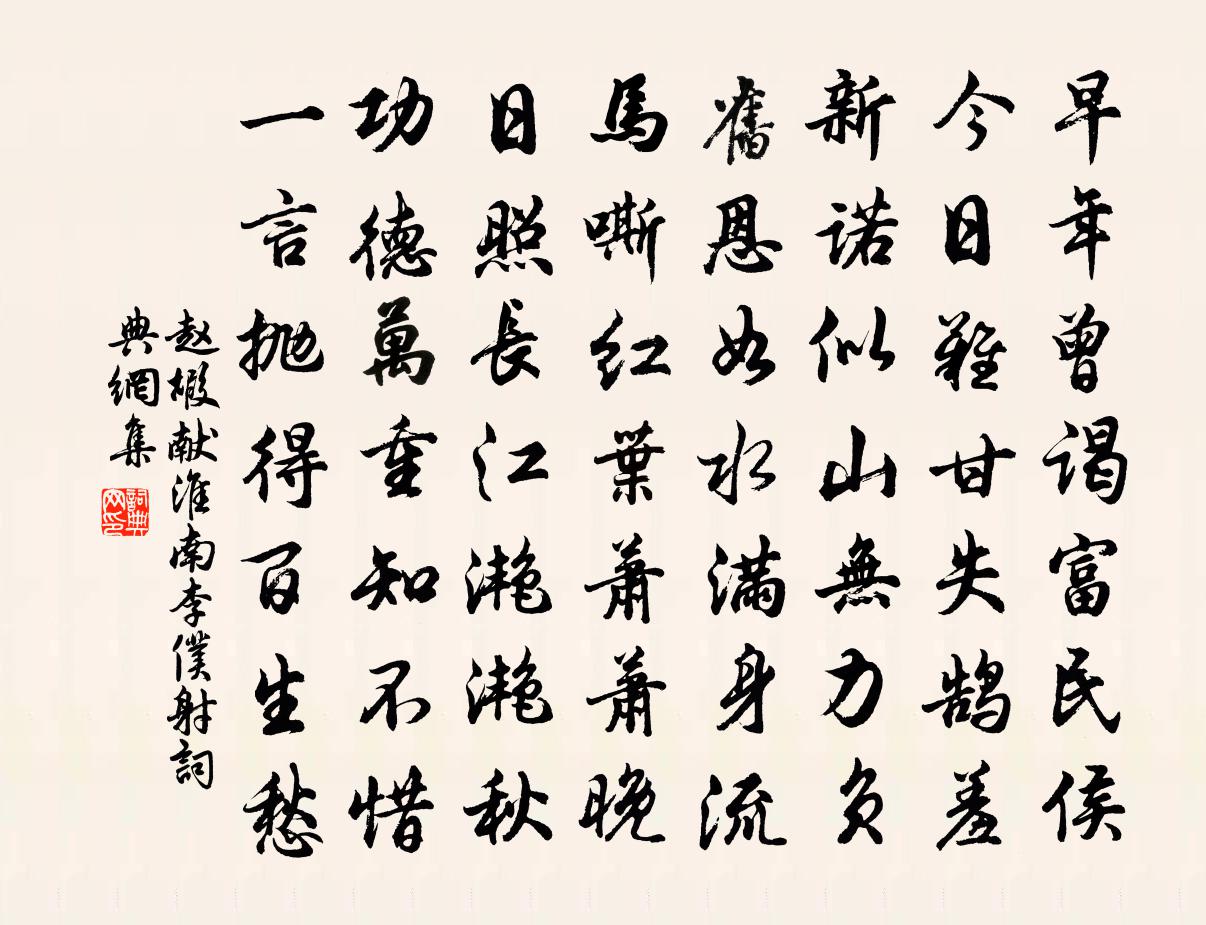 早年曾谒富民侯
今日難甘失鹄羞
新诺似山無力负
舊恩如水满身流
馬嘶红葉萧萧晚
日照長江滟滟秋
功德萬重知不惜
一言抛得百生愁
赵嘏献淮南李僕射詞
典網集
詞典网印